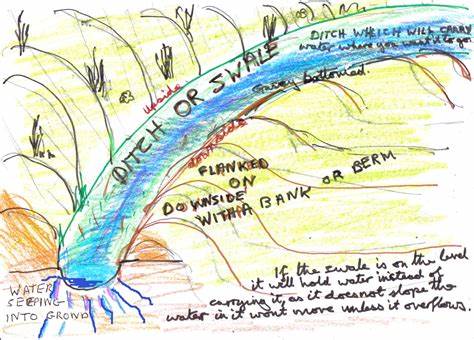 DITCH WHICH WILL CARRY
water where you want it to go.
Gravey bottomed.
upside
DITCH OR SWALE
downside
FLANKED
ON
DOWNSIDE
WITH A BANK OR BERM
WATER
SEEPING
INTO GROND
If the swale is on the level
it will hold water instead of
carrying it, as it doesnot slope the
water in it wont move unless it overflows.